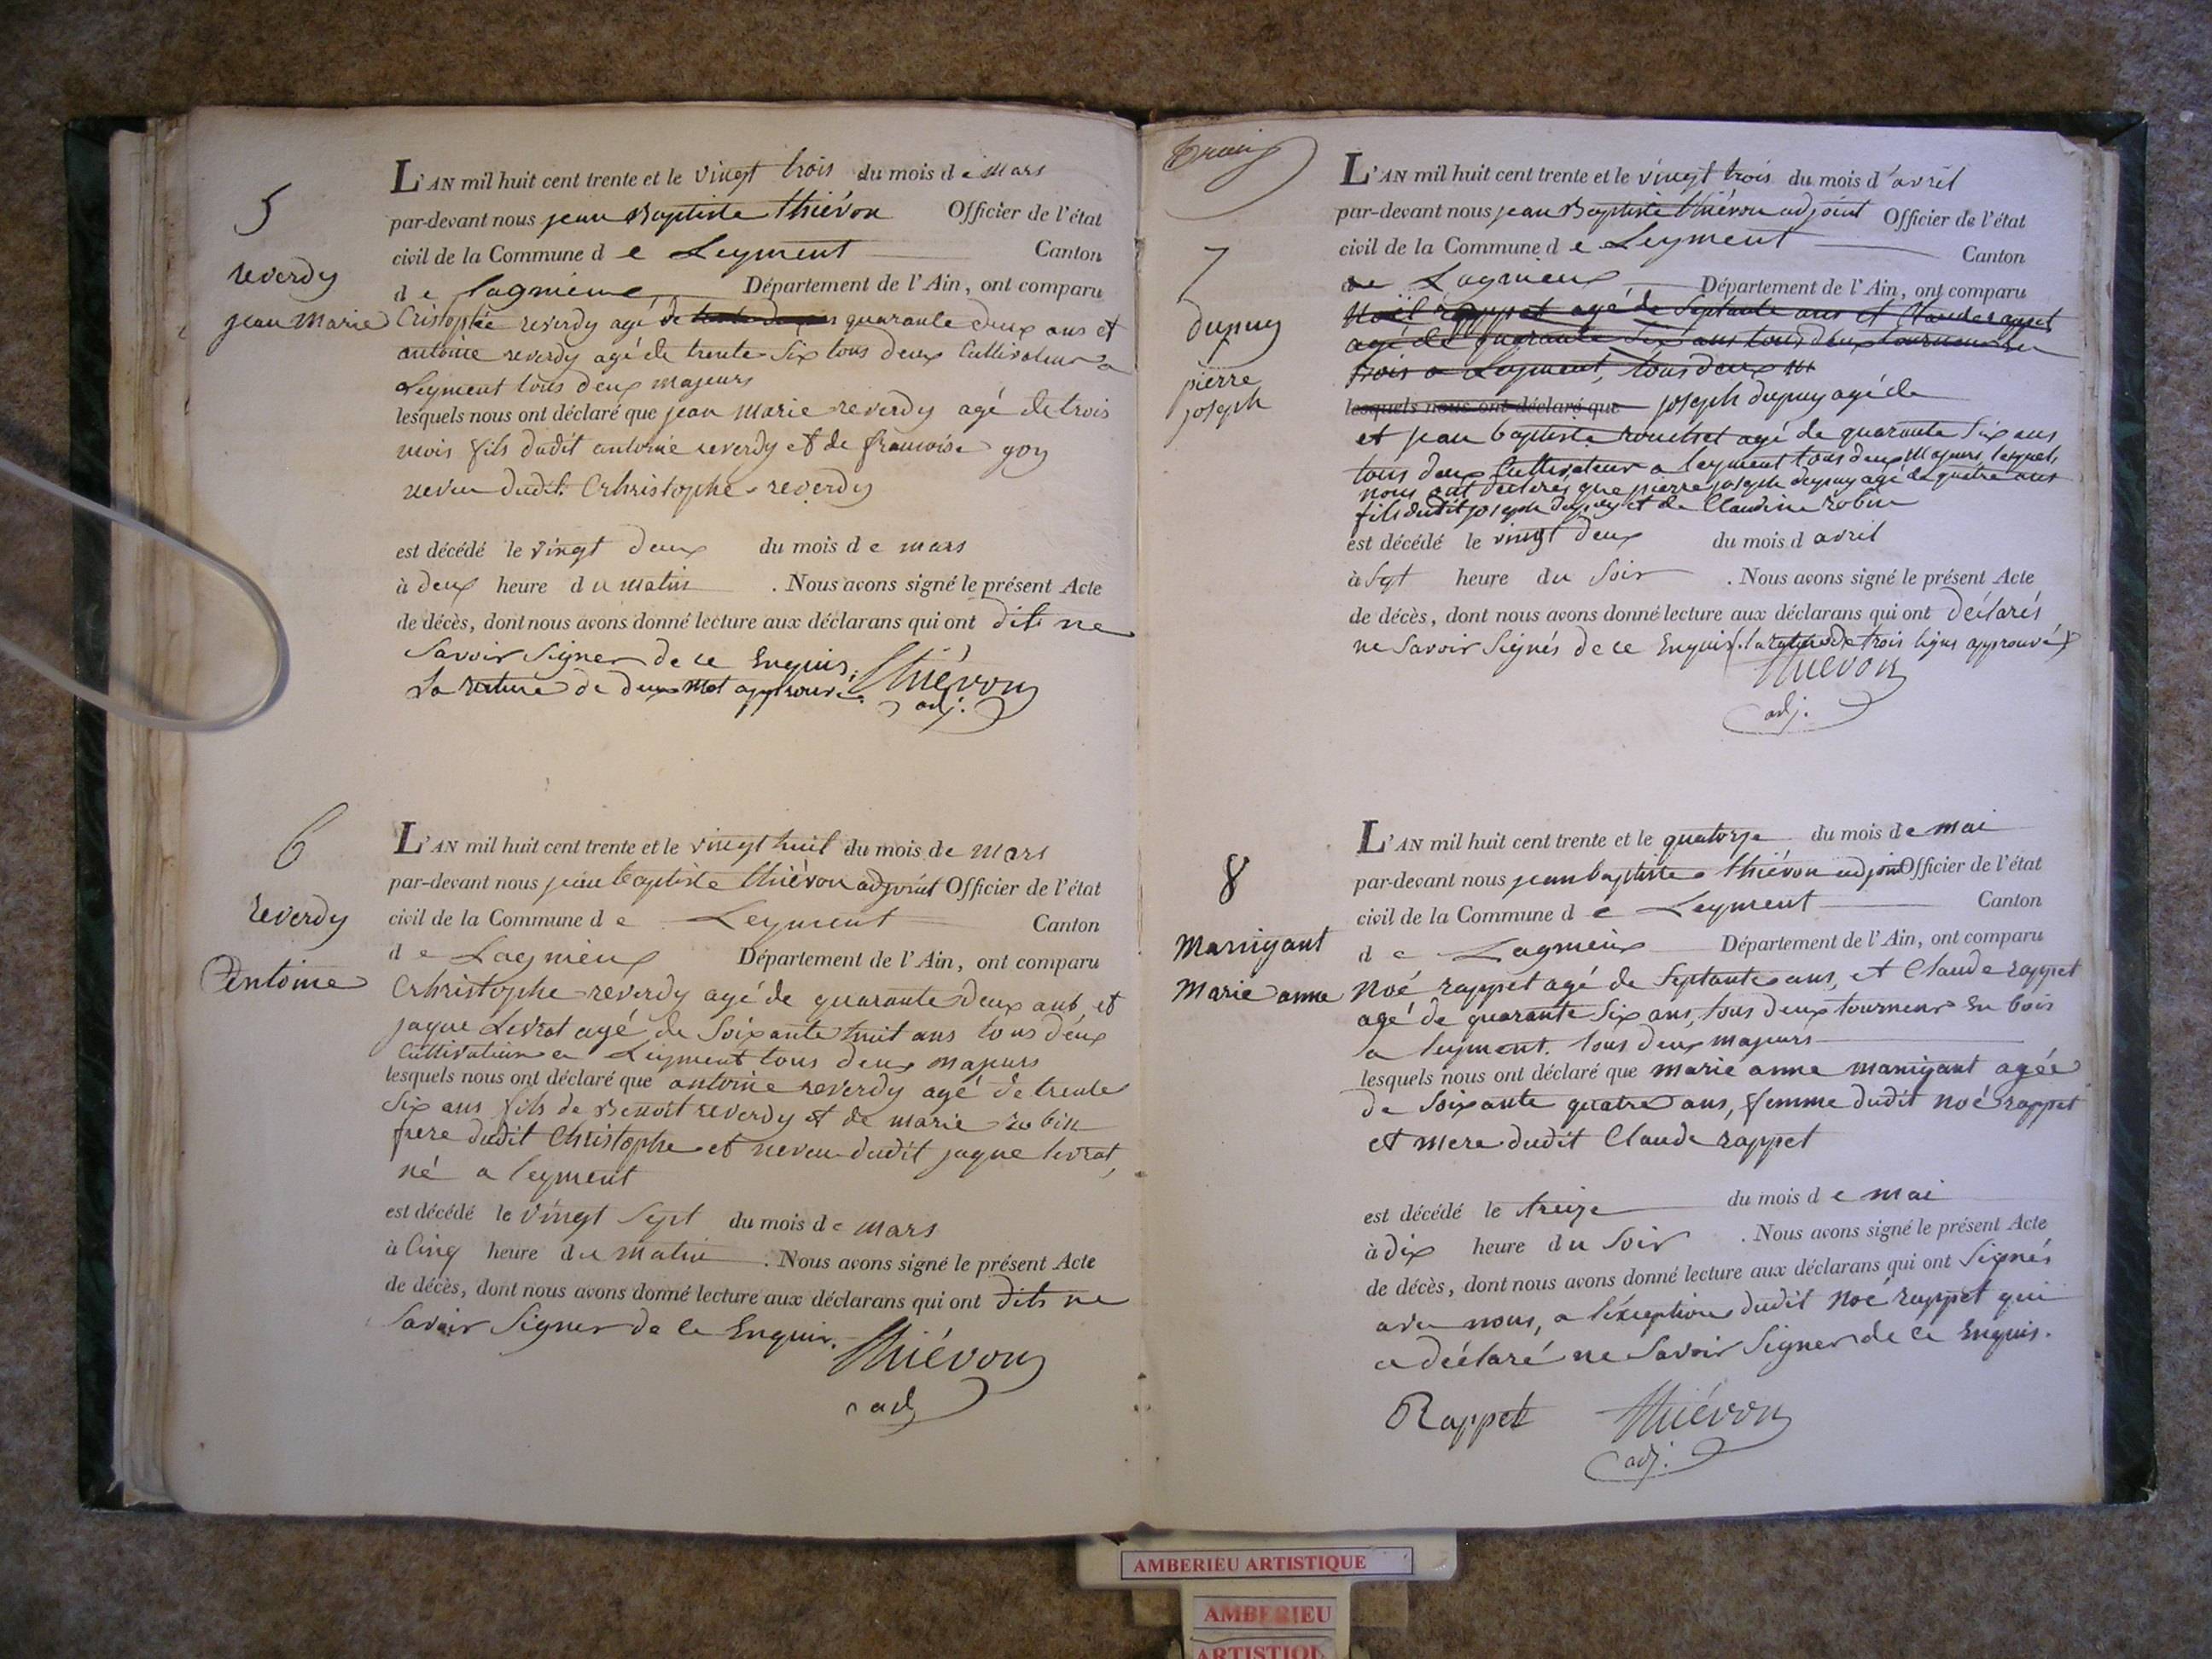 5
reverdy
jean Marie
L'AN mil huit cent trente et le vingt trois du mois de Mars
par-devant nous jean Baptiste thiévon Officier de l'état
civil de la Commune de Leyment Canton
de lagnieux Département de l'Ain, ont comparu
Cristophe reverdy agé de quarante deux ans et
antoine reverdy agé de trente Six tous deux Cultivateur a
Leyment tous deux majeurs
lesquels nous ont déclaré que jean Marie reverdy agé de trois
mois fils dudit antoine reverdy et de francoise goy
neveu dudit Crhristophe reverdy
est décédé le vingt deux du mois de mars
à deux heure du matin . Nous avons signé le présent Acte
de décès, dont nous avons donné lecture aux déclarans qui ont dits ne
Savoir Signer de ce Enquis,
La rature de deux Mot approuvé. Thiévon
adj.
6
reverdy
Antoine
L'AN mil huit cent trente et le vingt huit du mois de Mars
par-devant nous jean baptiste thiévon adjoint Officier de l'état
civil de la Commune de Leyment Canton
de Lagnieux Département de l'Ain, ont comparu
Crhristophe reverdy agé de quarante deux ans et
jaque Levrat agé de Soixante huit ans tous deux
Cultivateur a Leyment tous deux majeurs
lesquels nous ont déclaré que antoine reverdy agé de trente
Six ans fils de Benoit reverdy et de marie robin
frere dudit Christophe et neveu dudit jaque levrat,
né a leyment
est décédé le vingt Sept du mois de mars
à Cinq heure du matin . Nous avons signé le présent Acte
de décès, dont nous avons donné lecture aux déclarans qui ont dits ne
Savoir Signer de ce Enquis.
Thiévon
adj
7
dupuy
pierre
joseph
L'AN mil huit cent trente et le vingt trois du mois d'avril
par-devant nous jean Baptiste thiévon adjoint Officier de l'état
civil de la Commune de Leyment Canton
de Lagnieux Département de l'Ain, ont comparu
Noël rappet agé de Septante ans et Claude rappet
agé de quarante Six ans tous deux tourneur en
bois a Leyment, tous deux m
lesquels nous ont déclaré que joseph dupuy agé de
et jean baptiste rouchet agé de quarante Six ans
tous deux Cultivateur a leyment tous deux Majeurs, lesquels
nous ont déclarés que pierre joseph dupuy agé de quatre ans
fils dudit joseph dupuy et de Claudine robin
est décédé le vingt deux du mois d avril
à Sept heure du Soir . Nous avons signé le présent Acte
de décès, dont nous avons donné lecture aux déclarans qui ont déclarés
ne Savoir Signés de ce Enquis (la rature de trois lignes approuvé)
Thiévon
adj.
8
Manigant
Marie anne
L'AN mil huit cent trente et le quatorze du mois de mai
par-devant nous jean baptiste thiévon adjoint Officier de l'état
civil de la Commune de Leyment Canton
de Lagnieux Département de l'Ain, ont comparu
Noé rappet agé de Septante ans, et Claude rappet
agé de quarante Six ans, tous deux tourneur en bois
a leyment. tous deux majeurs
lesquels nous ont déclaré que marie anne manigant agée
de Soixante quatre ans, femme dudit noé rappet
et mere dudit Claude rappet
est décédé le treize du mois de mai
à dix heure du Soir . Nous avons signé le présent Acte
de décès, dont nous avons donné lecture aux déclarans qui ont Signés
avec nous, a l'éxception dudit Noé rappet qui
a déclaré ne Savoir Signer de ce Enquis.
Rappet Thiévon
adj.
AMBERIEU ARTISTIQUE
AMBERIEU